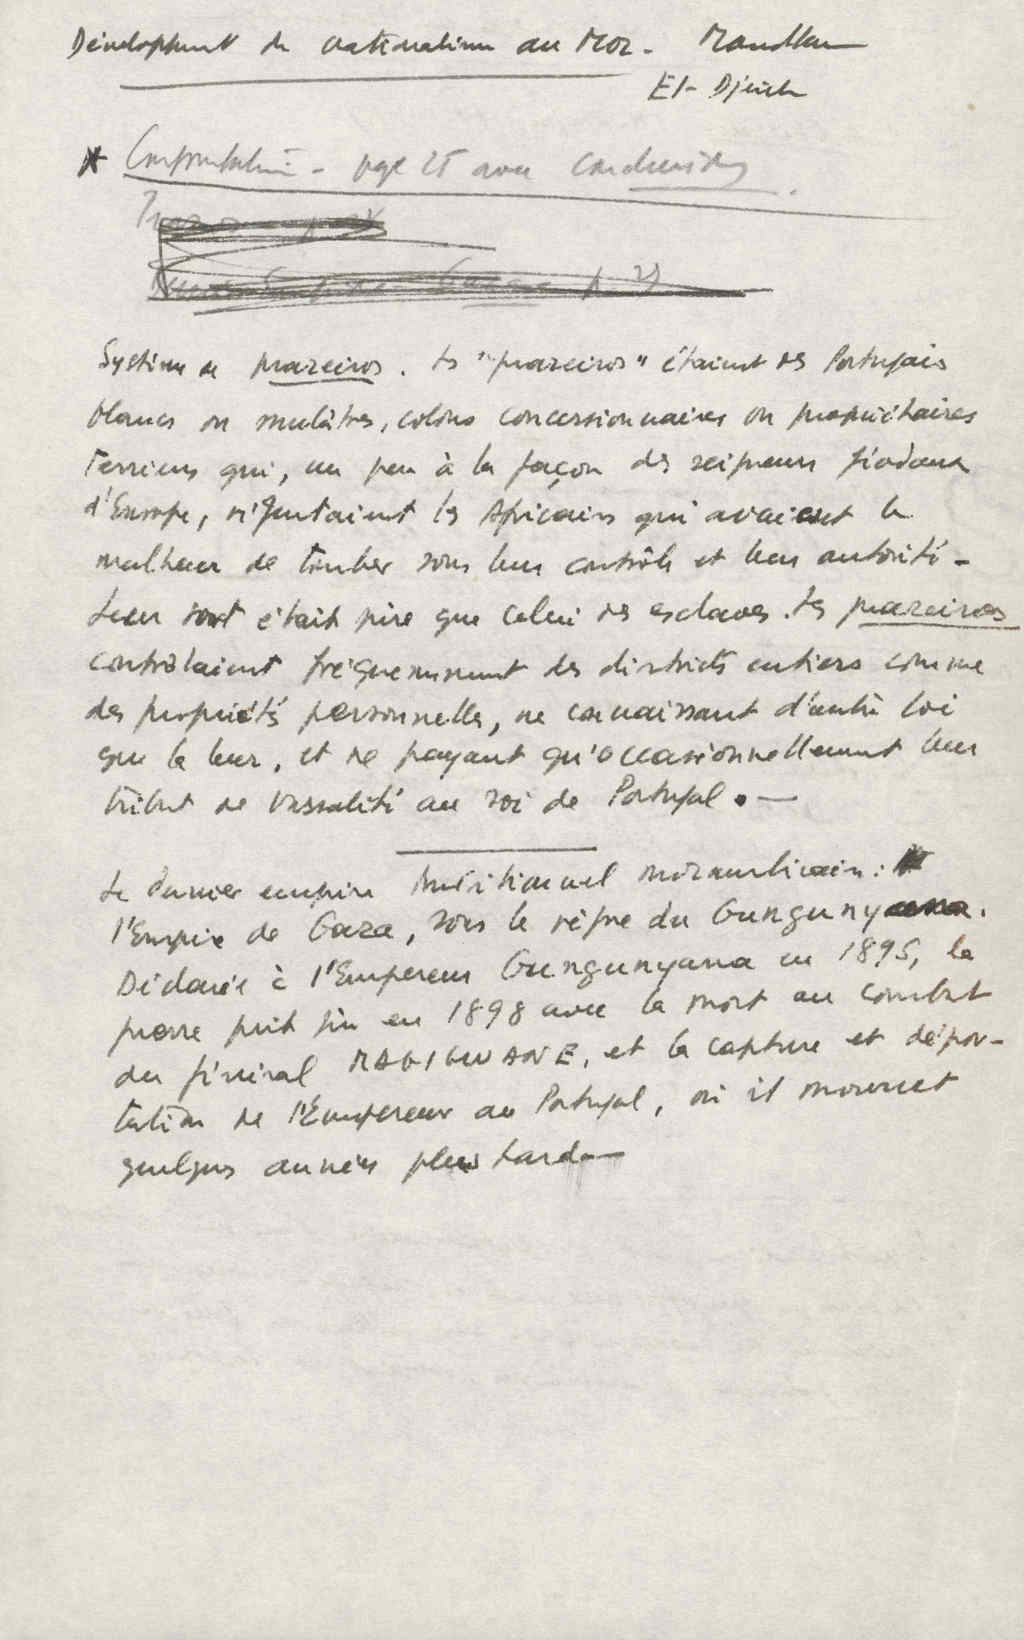 Développement du nationalisme au Moz. Mondlane
El-Djeich
* page 25 avec
Système de prazeiros. Les "prazeiros" étaient des Portugais
blancs ou mulâtres, colons concessionnaires ou propriétaires
terriens qui, un peu à la façon des seigneurs féodaux
d'Europe, régentaient les Africains qui avaient le
malheur de tomber sous leur contrôle et leur autorité -
Leur sort était pire que celui des esclaves. Les prazeiros
contrôlaient fréquemment des districts entiers comme
des propriétés personnelles, ne connaissant d'autre loi
que la leur, et ne payant qu'occasionnellement leur
tribut de vassalité au roi de Portugal. —
Le dernier empire traditionnel mozambicain :
l'Empire de Gaza, sous le règne du Gungunyana.
Déclarée à l'Empereur Gungunyana en 1895, la
guerre prit fin en 1898 avec la mort au combat
du général MAGIGWANE, et la capture et dépor-
tation de l'Empereur au Portugal, où il mourut
quelques années plus tard —